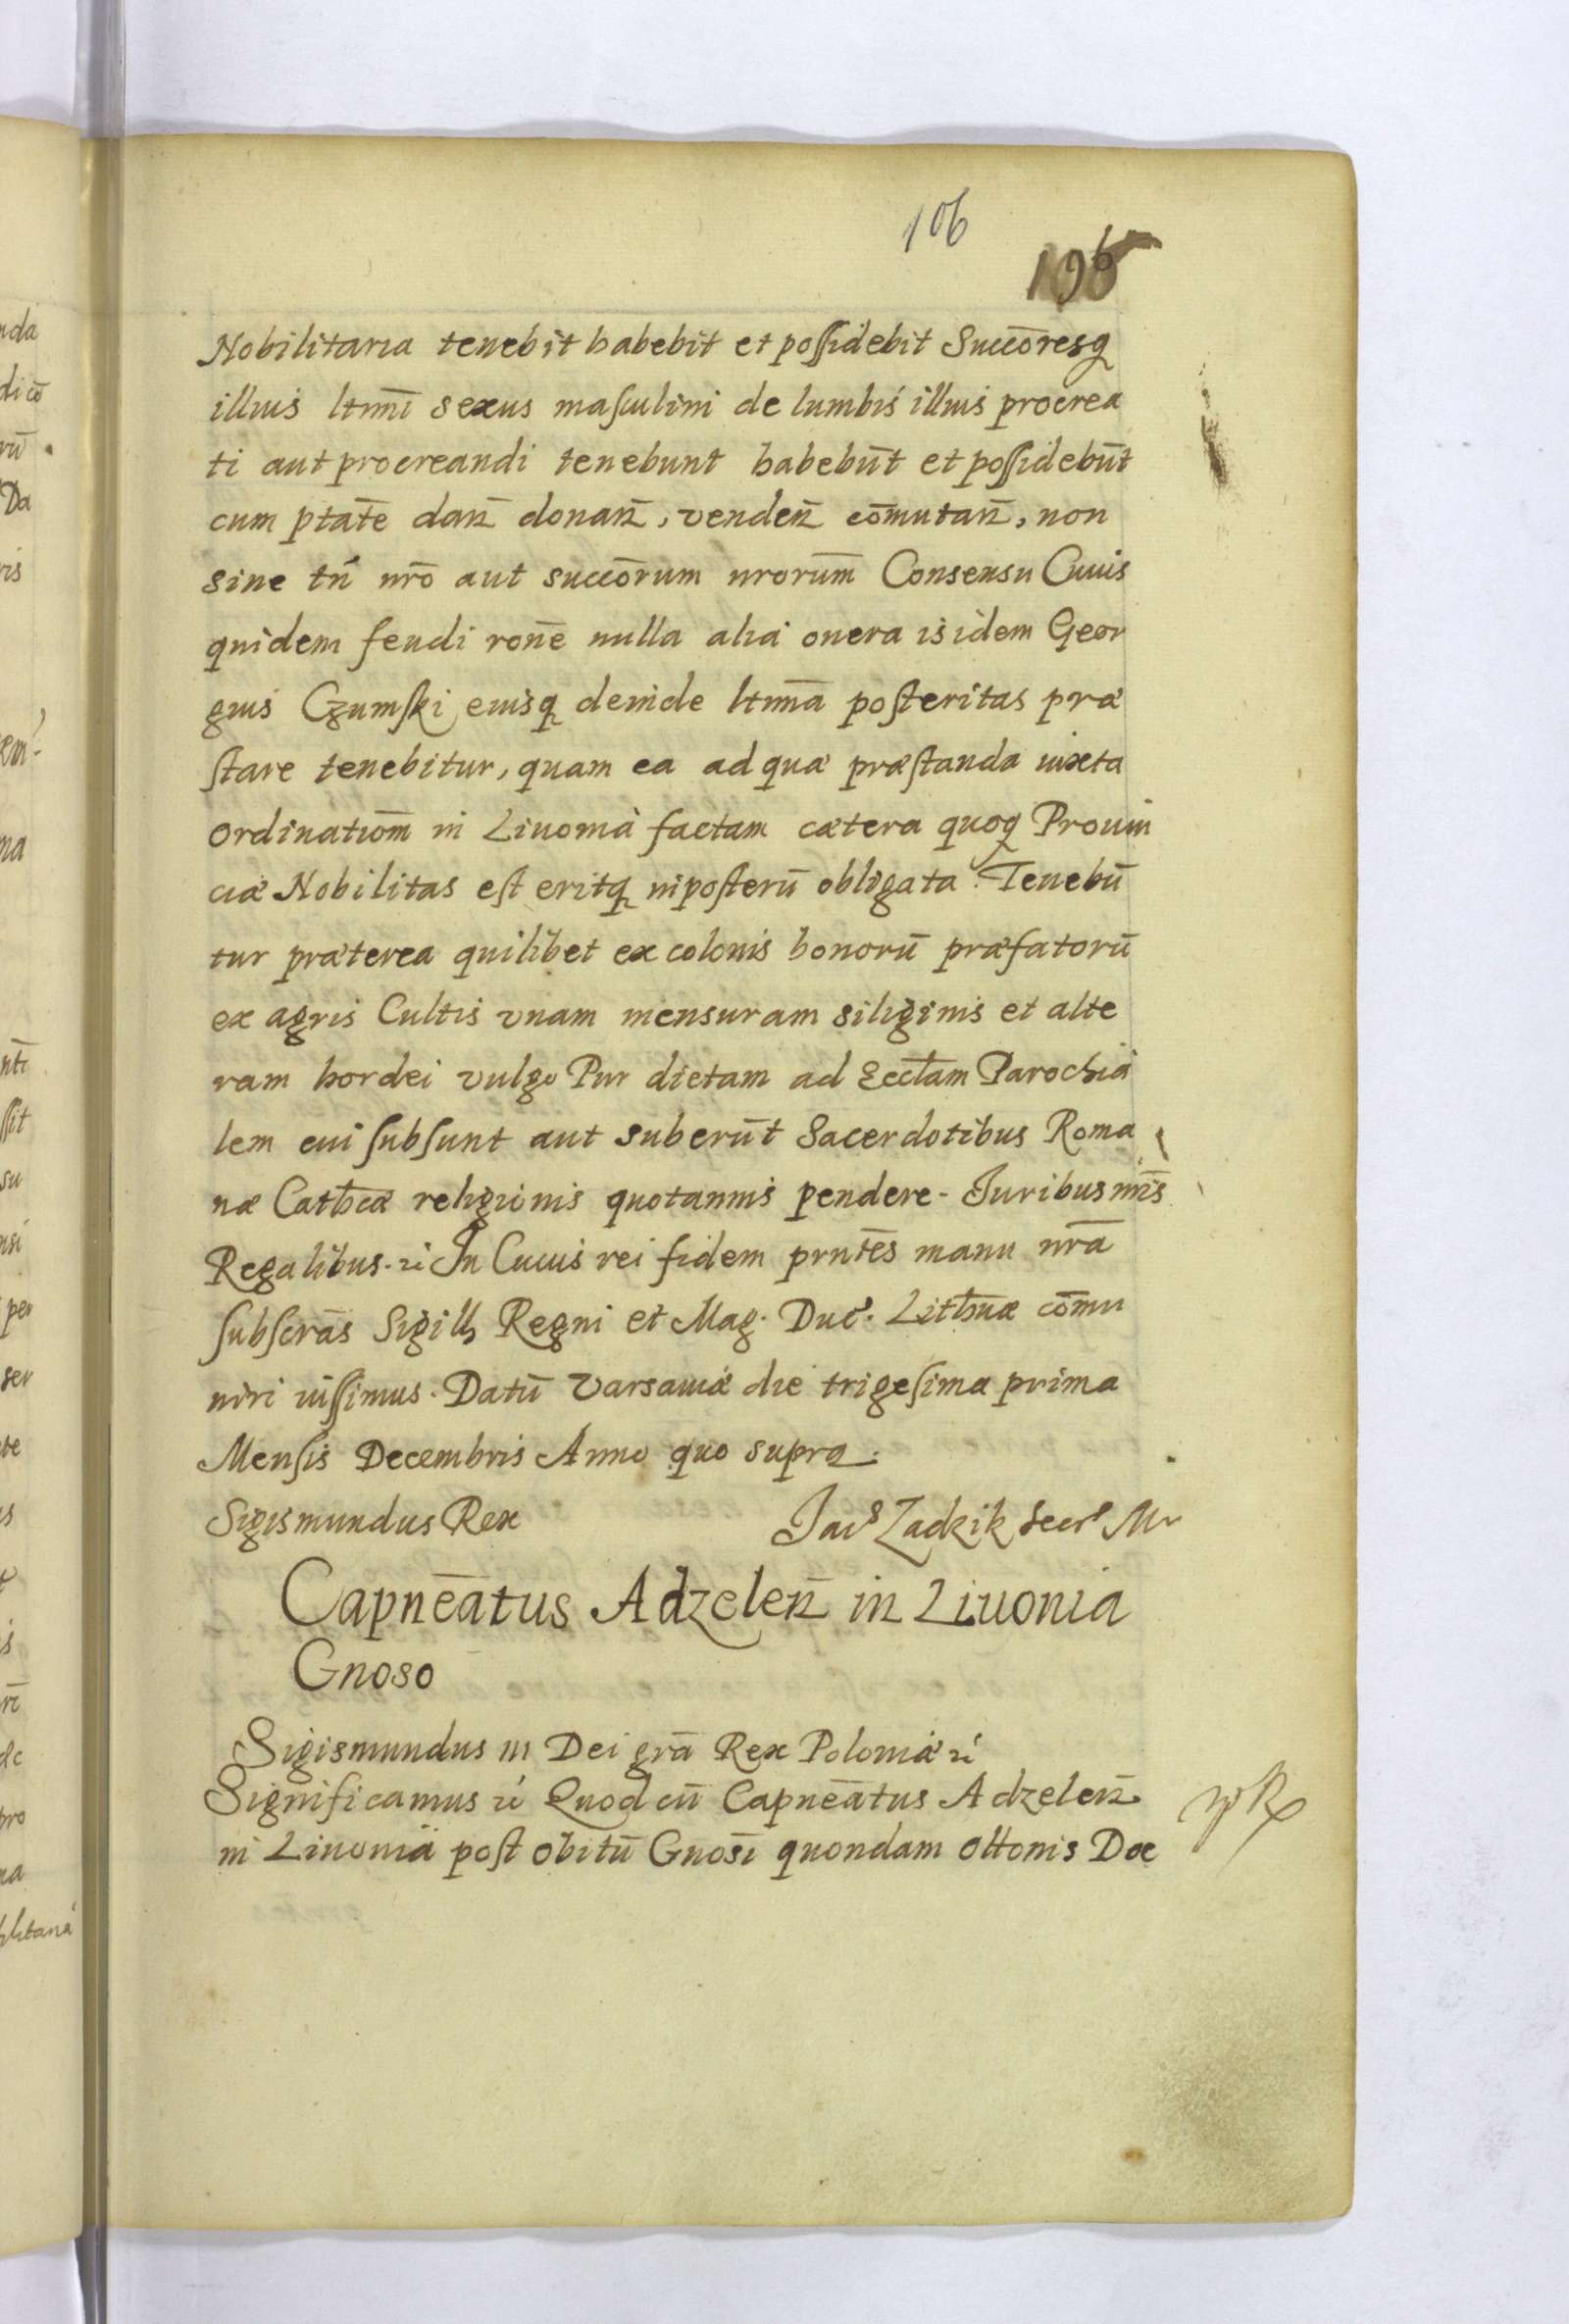 106
196
Nobilitaria tenebit habebit et possidebit Succōresq
illius ltīmī sexus masculini de lumbis illius procrea
ti aut procreandi tenebunt habebūt et possidebūt
cum ptāte daṅ donaṅ, vendeṅ cōmutaṅ, non
sine tń nrō aut succōrum nrorūm Consensu Cuius
quidem feudi ronē nulla alia onera is idem Geor
gius Czumski eiusq deinde ltīma posteritas præ
stare tenebitur, quam ea ad quæ præstanda iuxta
Ordinatiōm in Liuonia factam cætera quoq Prouin
ciæ Nobilitas est eritq in posterū obligata. Tenebū
tur præterea quilibet ex colonis bonorū præfatorū
ex agris Cultis vnam mensuram siliginis et alte
ram hordei vulgo Pur dictam ad Ecclām Parochia
lem cui subsunt aut suberūt Sacerdotibus Roma
næ Cathcæ religionis quotannis pendere. Iuribus nrīs
Regalibus. rć In Cuius rei fidem prntēs manu nrā
subscrās Sigill Regni et Mag. Duc. Lithūæ cōmu
niri iussimus. Datū Varsauiæ die trigesima prima
Mensis Decembris Anno quo supra.
Sigismundus Rex Jacs Zadzik Secrs Mr
Capneātus Adzeleṅ in Liuonia
Gnoso
Sigismundus III Dei grā Rex Poloniæ rć
Significamus rć Quod cū Capneātus Adzeleṅ
in Liuonia post obitū Gnosī quondam Ottonis Doe